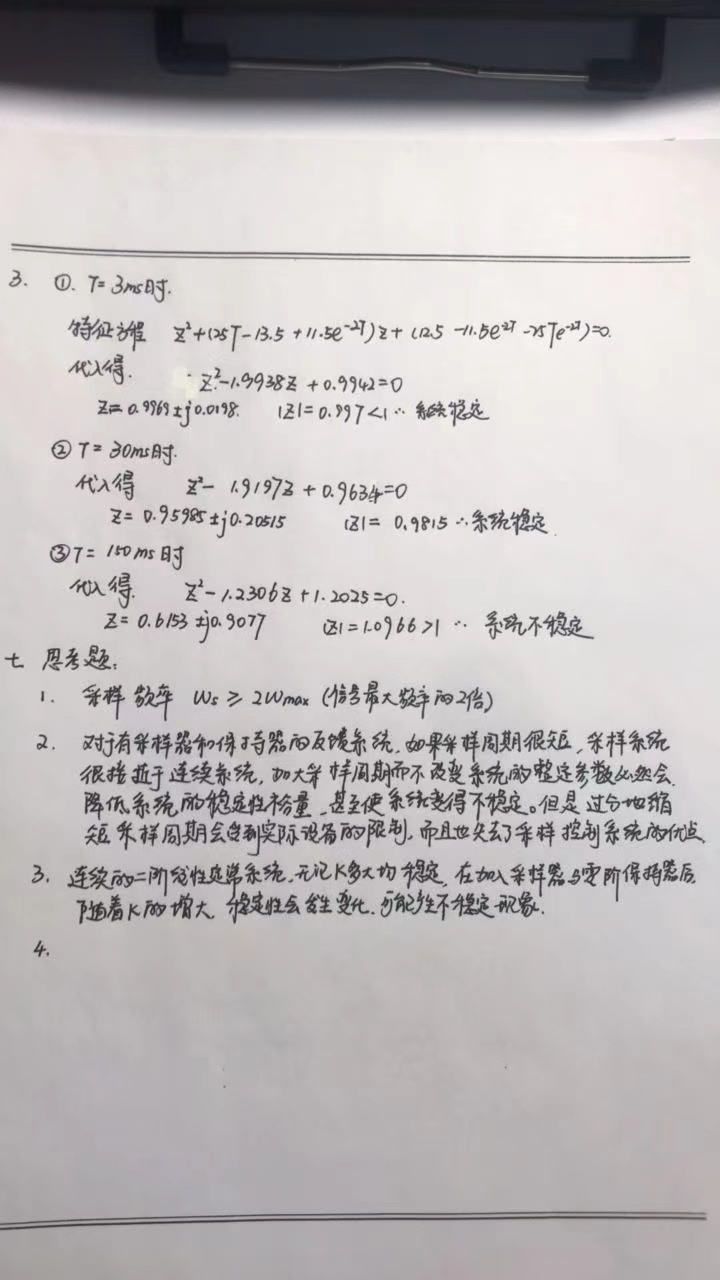 3. ①. T=3ms时.
特征方程 z²+(25T-13.5+11.5e^{-2T})z+(12.5-11.5e^{2T}-25Te^{-2T})=0.
代入得. z²-1.9938z+0.9942=0
z=0.9969±j0.0198. |z|=0.997<1 ∴ 系统稳定
② T=30ms时.
代入得 z²-1.9197z+0.9634=0
z=0.95985±j0.20515 |z|=0.9815 ∴系统稳定
③T=150ms时
代入得. z²-1.2306z+1.2025=0.
z=0.6153±j0.9077 |z|=1.0966>1 ∴ 系统不稳定
七 思考题:
1. 采样频率 Ws≥2Wmax (信号最大频率的2倍)
2. 对于有采样器和保持器的反馈系统,如果采样周期很短,采样系统
很接近于连续系统,加大采样周期而不改变系统的整定参数必然会
降低系统的稳定性裕量,甚至使系统变得不稳定。但是过分地缩
短采样周期会受到实际设备的限制,而且也失去了采样控制系统的优点.
3. 连续的二阶线性定常系统,无论K多大均稳定,在加入采样器与零阶保持器后
随着K的增大,稳定性会发生变化,可能产生不稳定现象.
4.